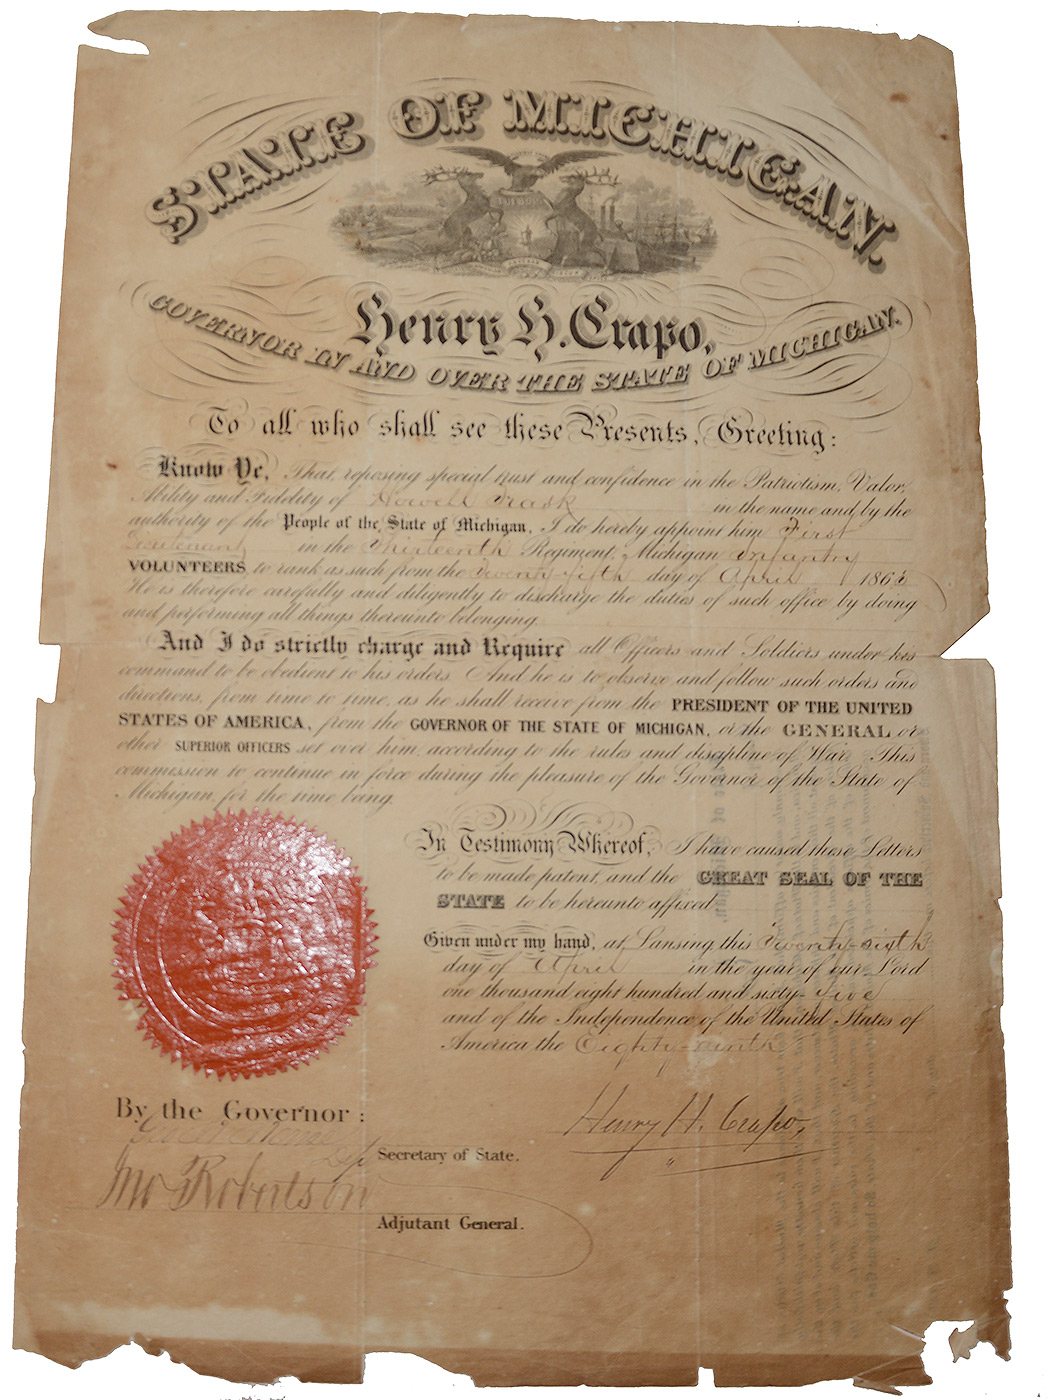 STATE OF MICHIGAN.
TUEBOR
Henry H. Crapo,
GOVERNOR IN AND OVER THE STATE OF MICHIGAN.
To all who shall see these Presents, Greeting:
Know Ye, That, reposing special trust and confidence in the Patriotism, Valor,
Ability and Fidelity of Howell Trask in the name and by the
authority of the People of the State of Michigan, I do hereby appoint him First
Lieutenant in the Thirteenth Regiment, Michigan Infantry
VOLUNTEERS, to rank as such from the Twenty-fifth day of April 1865
He is therefore carefully and diligently to discharge the duties of such office by doing
and performing all things thereunto belonging.
And I do strictly charge and Require all Officers and Soldiers under his
command to be obedient to his orders. And he is to observe and follow such orders and
directions, from time to time, as he shall receive from the PRESIDENT OF THE UNITED
STATES OF AMERICA, from the GOVERNOR OF THE STATE OF MICHIGAN, or the GENERAL or
other SUPERIOR OFFICERS set over him, according to the rules and discipline of War. This
commission to continue in force during the pleasure of the Governor of the State of
Michigan, for the time being.
In Testimony Whereof, I have caused these Letters
to be made patent, and the GREAT SEAL OF THE
STATE to be hereunto affixed.
Given under my hand, at Lansing, this Twenty-sixth
day of April in the year of our Lord
one thousand eight hundred and sixty-five
and of the Independence of the United States of
America the Eighty-ninth
By the Governor:
Henry H. Crapo,
Dep Secretary of State.
Jno Robertson
Adjutant General.